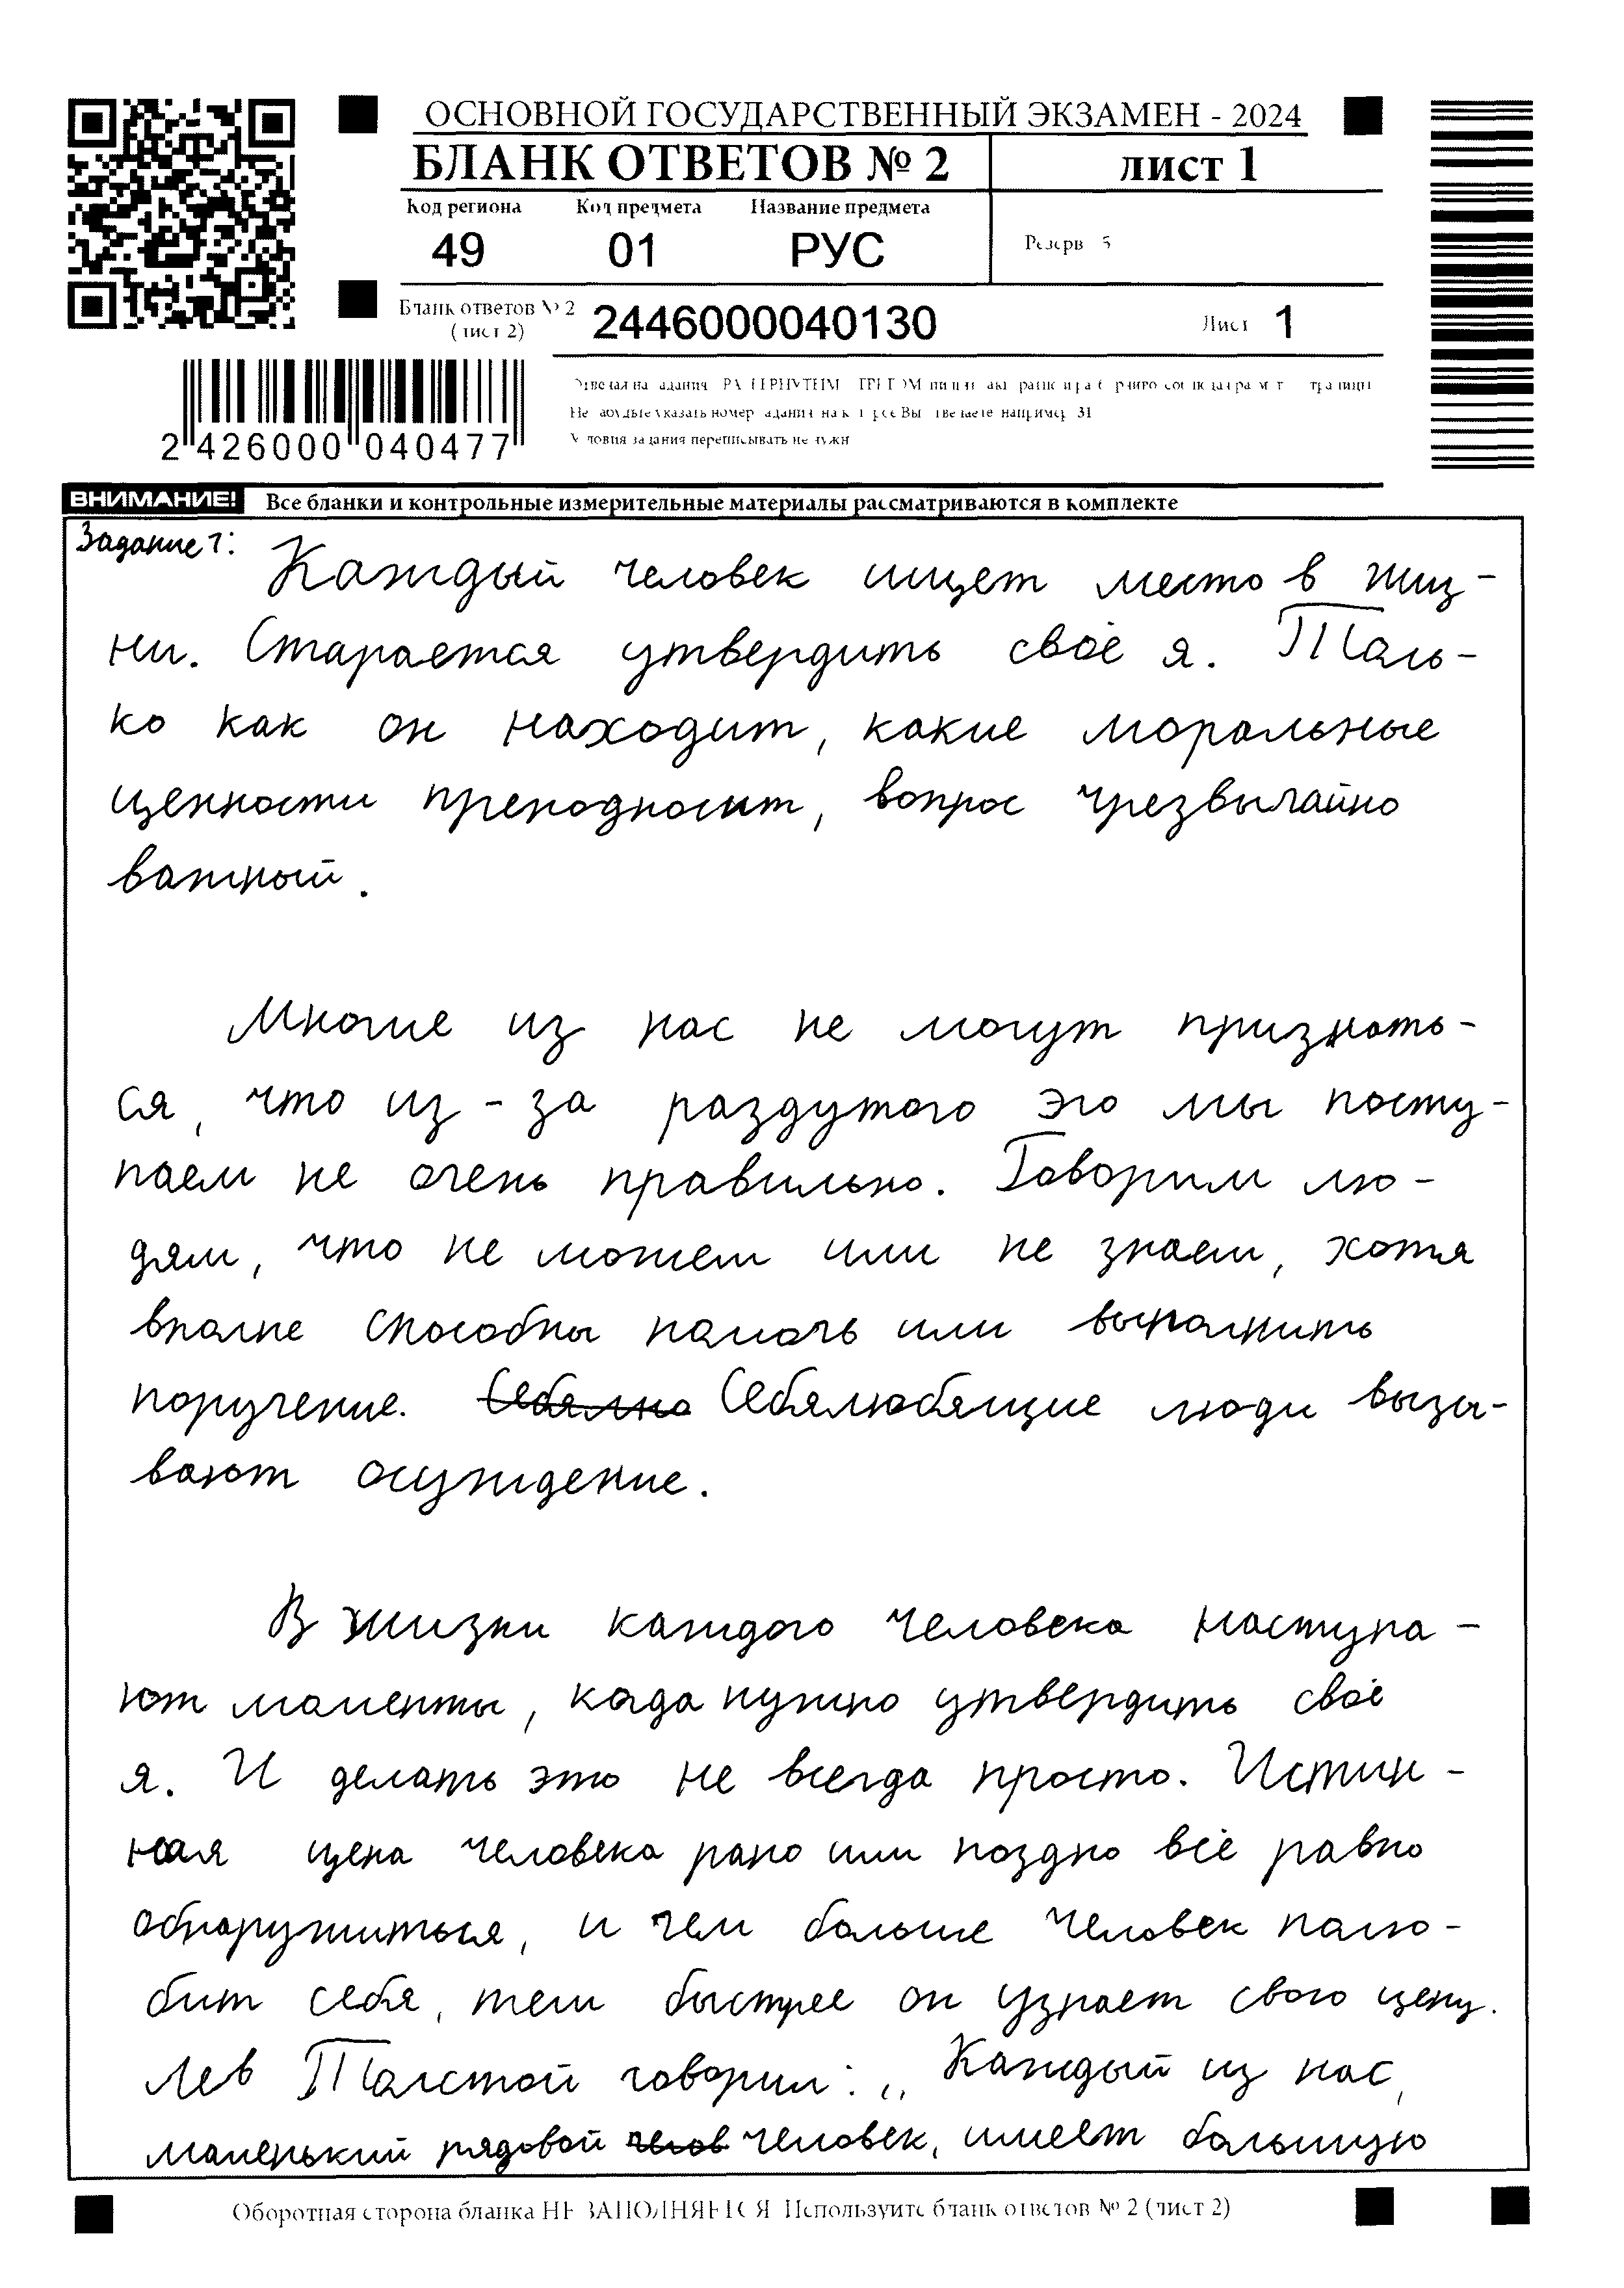 ОСНОВНОЙ ГОСУДАРСТВЕННЫЙ ЭКЗАМЕН - 2024
БЛАНК ОТВЕТОВ № 2 лист 1
Код региона Код предмета Название предмета
49 01 РУС
Резерв - 5
Бланк ответов № 2
(лист 2) 2446000040130 Лист 1
2 426000 040477
Условия задания переписывать не нужно
ВНИМАНИЕ! Все бланки и контрольные измерительные материалы рассматриваются в комплекте
Задание 1: Каждый человек ищет место в жиз-
ни. Старается утвердить своё я. Толь-
ко как он находит, какие моральные
ценности преподносит, вопрос чрезвычайно
важный.
Многие из нас не могут признать-
ся, что из-за раздутого эго мы посту-
паем не очень правильно. Говорим лю-
дям, что не можем или не знаем, хотя
вполне способны помочь или выполнить
поручение. Себялю Себялюбящие люди вызы-
вают осуждение.
В жизни каждого человека наступа-
ют моменты, когда нужно утвердить своё
я. И делать это не всегда просто. Истин-
ная цена человека рано или поздно всё равно
обнаружиться, и чем больше человек полю-
бит себя, тем быстрее он узнает свою цену.
Лев Толстой говорил: „Каждый из нас,
маленький рядовой челов человек, имеет большую
Оборотная сторона бланка НЕ ЗАПОЛНЯЕТСЯ. Используйте бланк ответов № 2 (лист 2)